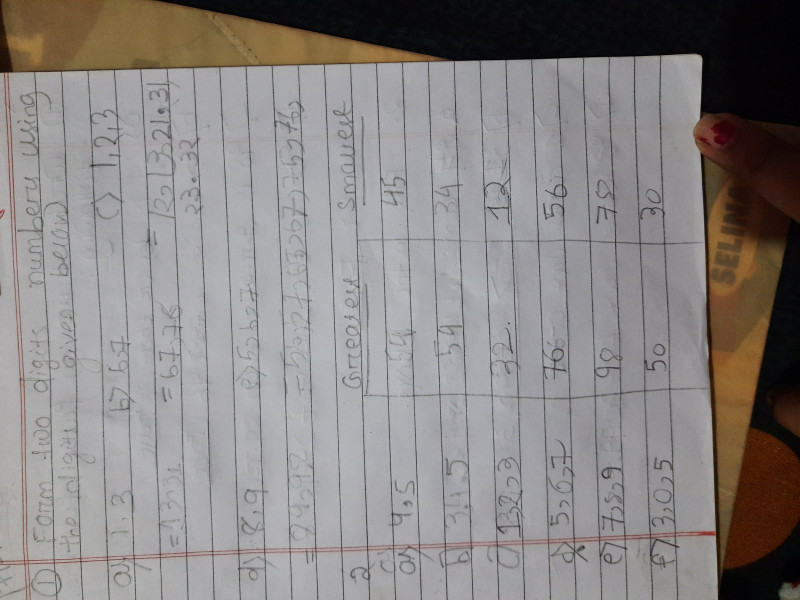 ① Form two digits numbers using
the digits given below
a) 1, 3 b) 6,7 c) 1, 2, 3
= 13,31 = 67,76 = 12, 13, 21, 31
23, 32
d) 8, 9 e) 5, 6, 7
2
Greatest Smallest
a) 4, 5 54 45
b) 3, 4, 5 54 34
c) 1, 2, 3 32 12
d) 5, 6, 7 76 56
e) 7, 8, 9 98 78
f) 3, 0, 5 50 30
SELINA